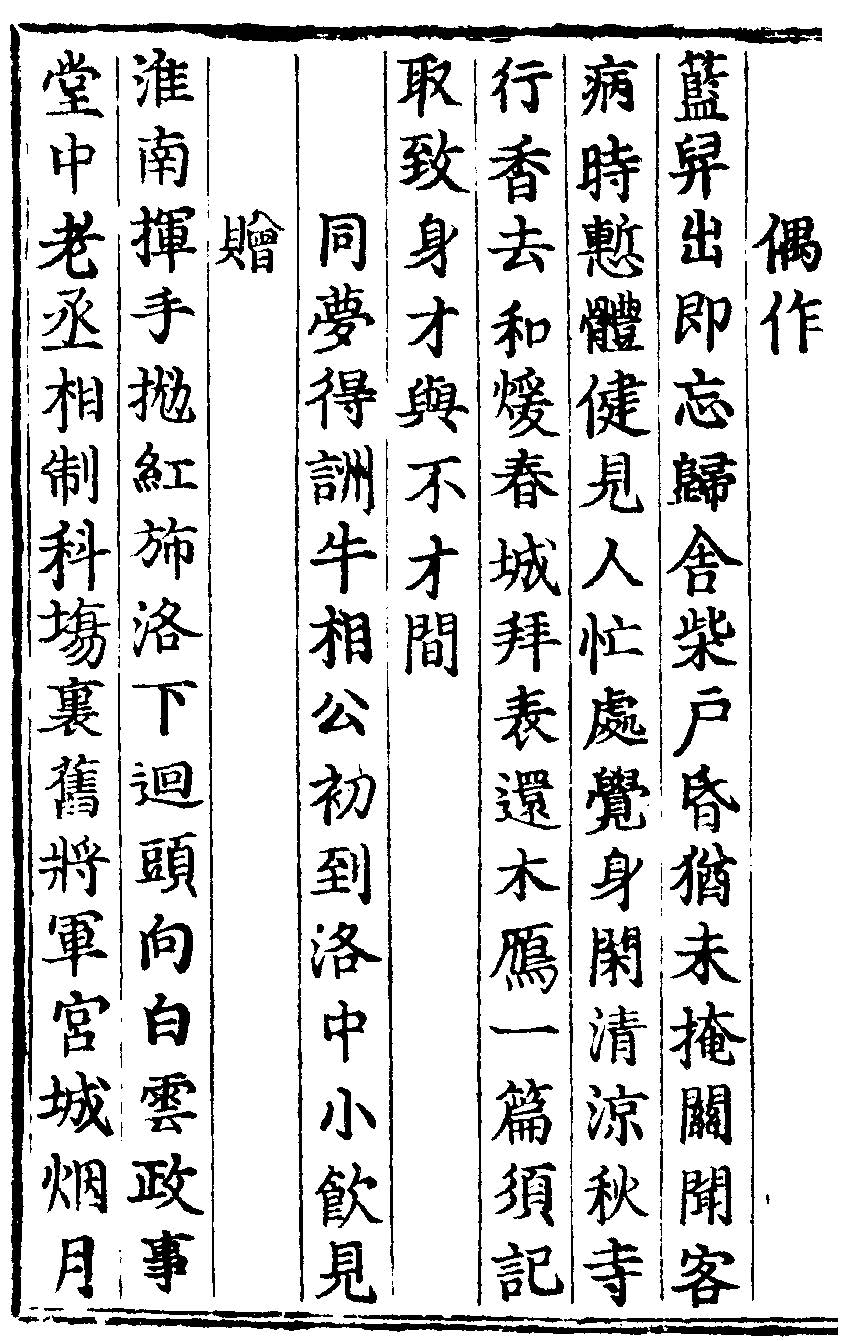 偶作
藍舁出即忘歸舍柴户昏猶未掩關聞客
病時慙體健見人忙處覺身閑清涼秋寺
行香去和煖春城拜表還木鴈一篇須記
取致身才與不才間
同夢得詶牛相公初到洛中小飲見
贈
淮南揮手抛紅斾洛下迴頭向白雲政事
堂中老丞相制科場裏舊將軍宮城烟月